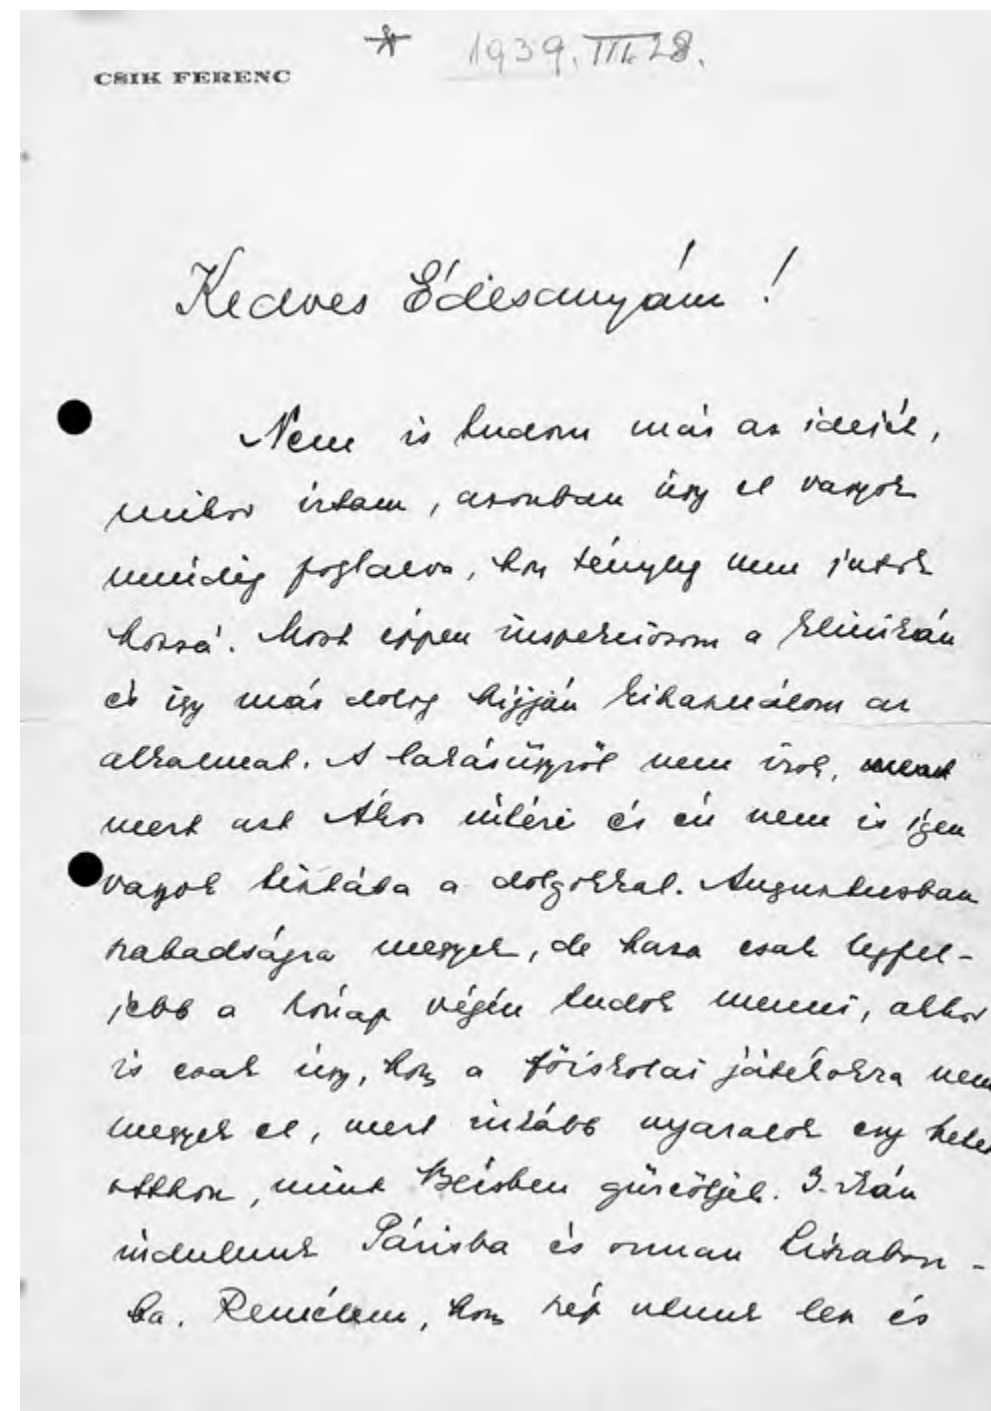 CSIK FERENC
* 1939. III. 28.
Kedves Édesanyám!
Nem is tudom már az idejét,
mikor írtam, azonban úgy el vagyok
mindig foglalva, hogy tényleg nem jutok
hozzá. Most éppen inspekciósom a klinikán
és így más dolog híjján kihasználom az
alkalmat. A lakásügyről nem írok,
mert azt Ákos intézi és én nem is igen
vagyok tisztába a dolgokkal. Augusztusban
szabadságra megyek, de haza csak legfel-
jebb a hónap végén tudok menni, akkor
is csak úgy, hogy a főiskolai játékokra nem
megyek el, mert inkább nyaralok egy hetet
otthon, mint Bécsben gürcöljek. 3.-ikán
indulunk Párisba és onnan Liszabon-
ba. Remélem, hogy szép utunk lesz és